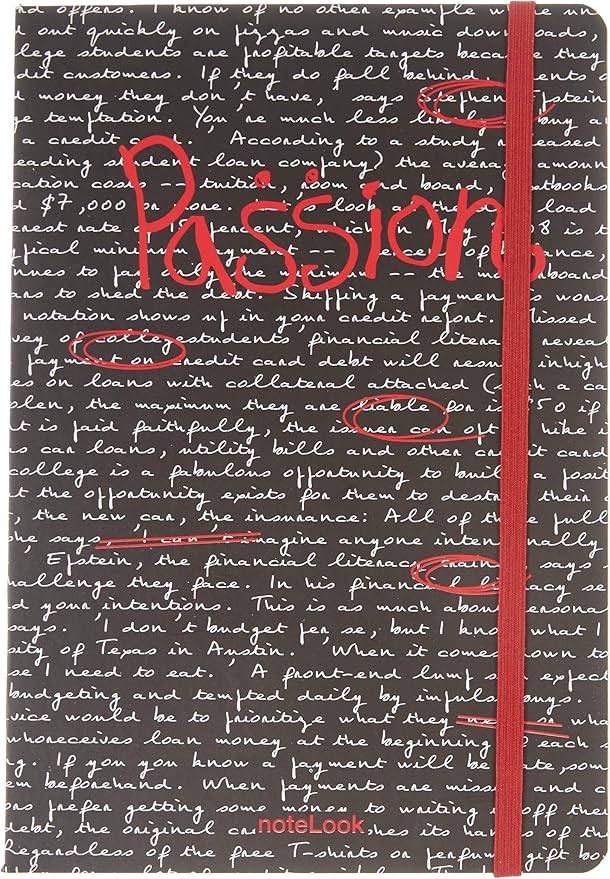 nd offers. I know of no other example
out quickly on pizzas and music downloads,
llege students are profitable targets because they
dit customers. If they do fall behind, ents
money they don't have, says Stephen Epstein
ge temptation. You're much less likely buy an
a credit card. 'According to a study released
eading student loan company) the average amoun
cation costs -- tuition, room and board, textbooks
d $7,000 on loans. look at the load
Passion
erest rate of 18 percent, which in May 08 is t
pical minimum payment -- percent of balance,
nues to pay only the minimum -- the board
ans to shed the debt. Skipping a payment is worse
notation shows up in your credit report. Missed
vey of college students financial literacy reveal
payment on credit card debt will result in high
es on loans with collateral attached (such a ca
olen, the maximum they are liable for is $50 if
t is paid faithfully, the issuer can opt hike i
s car loans, utility bills and other credit card
college is a fabulous opportunity to build a posit
t the opportunity exists for them to destroy their
, the new car, the insurance: All of those full
she says. 'I can't imagine anyone intentionally
Epstein, the financial literacy trainer says
hallenge they face. In his financial literacy se
d your intentions. This is as much about persona
says. 'I don't budget per se, but I know what I
sity of Texas in Austin. 'When it comes down to
se I need to eat.' A front-end lump sum expect
budgeting and tempted daily by impulse buys.
vice would be to prioritize what they need or wha
whoreceives loan money at the beginning of each s
ng. If you you know a payment will be late, som
em beforehand. When payments are missed and
ons prefer getting some money to writing off the
noteLook
debt, the original cre shes its hands of th
Regardless of the free T-shirts or perfume gift bo